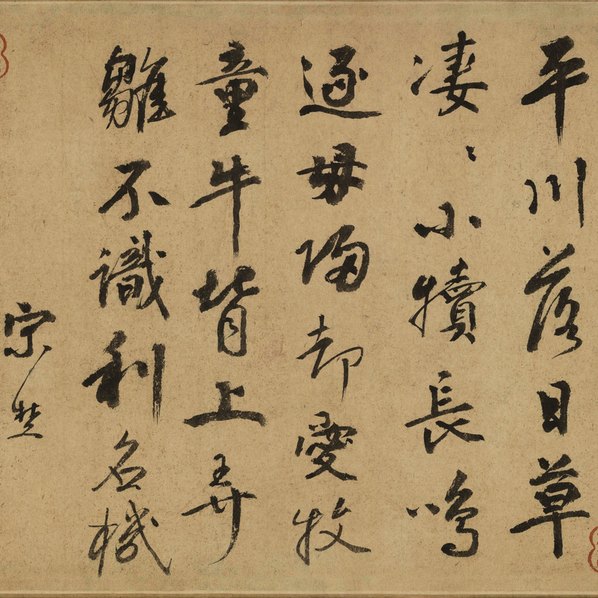 平川落日草
凄〻小犢長鳴
逐母歸却愛牧
童牛背上弄
雛不識利名機
宗楚